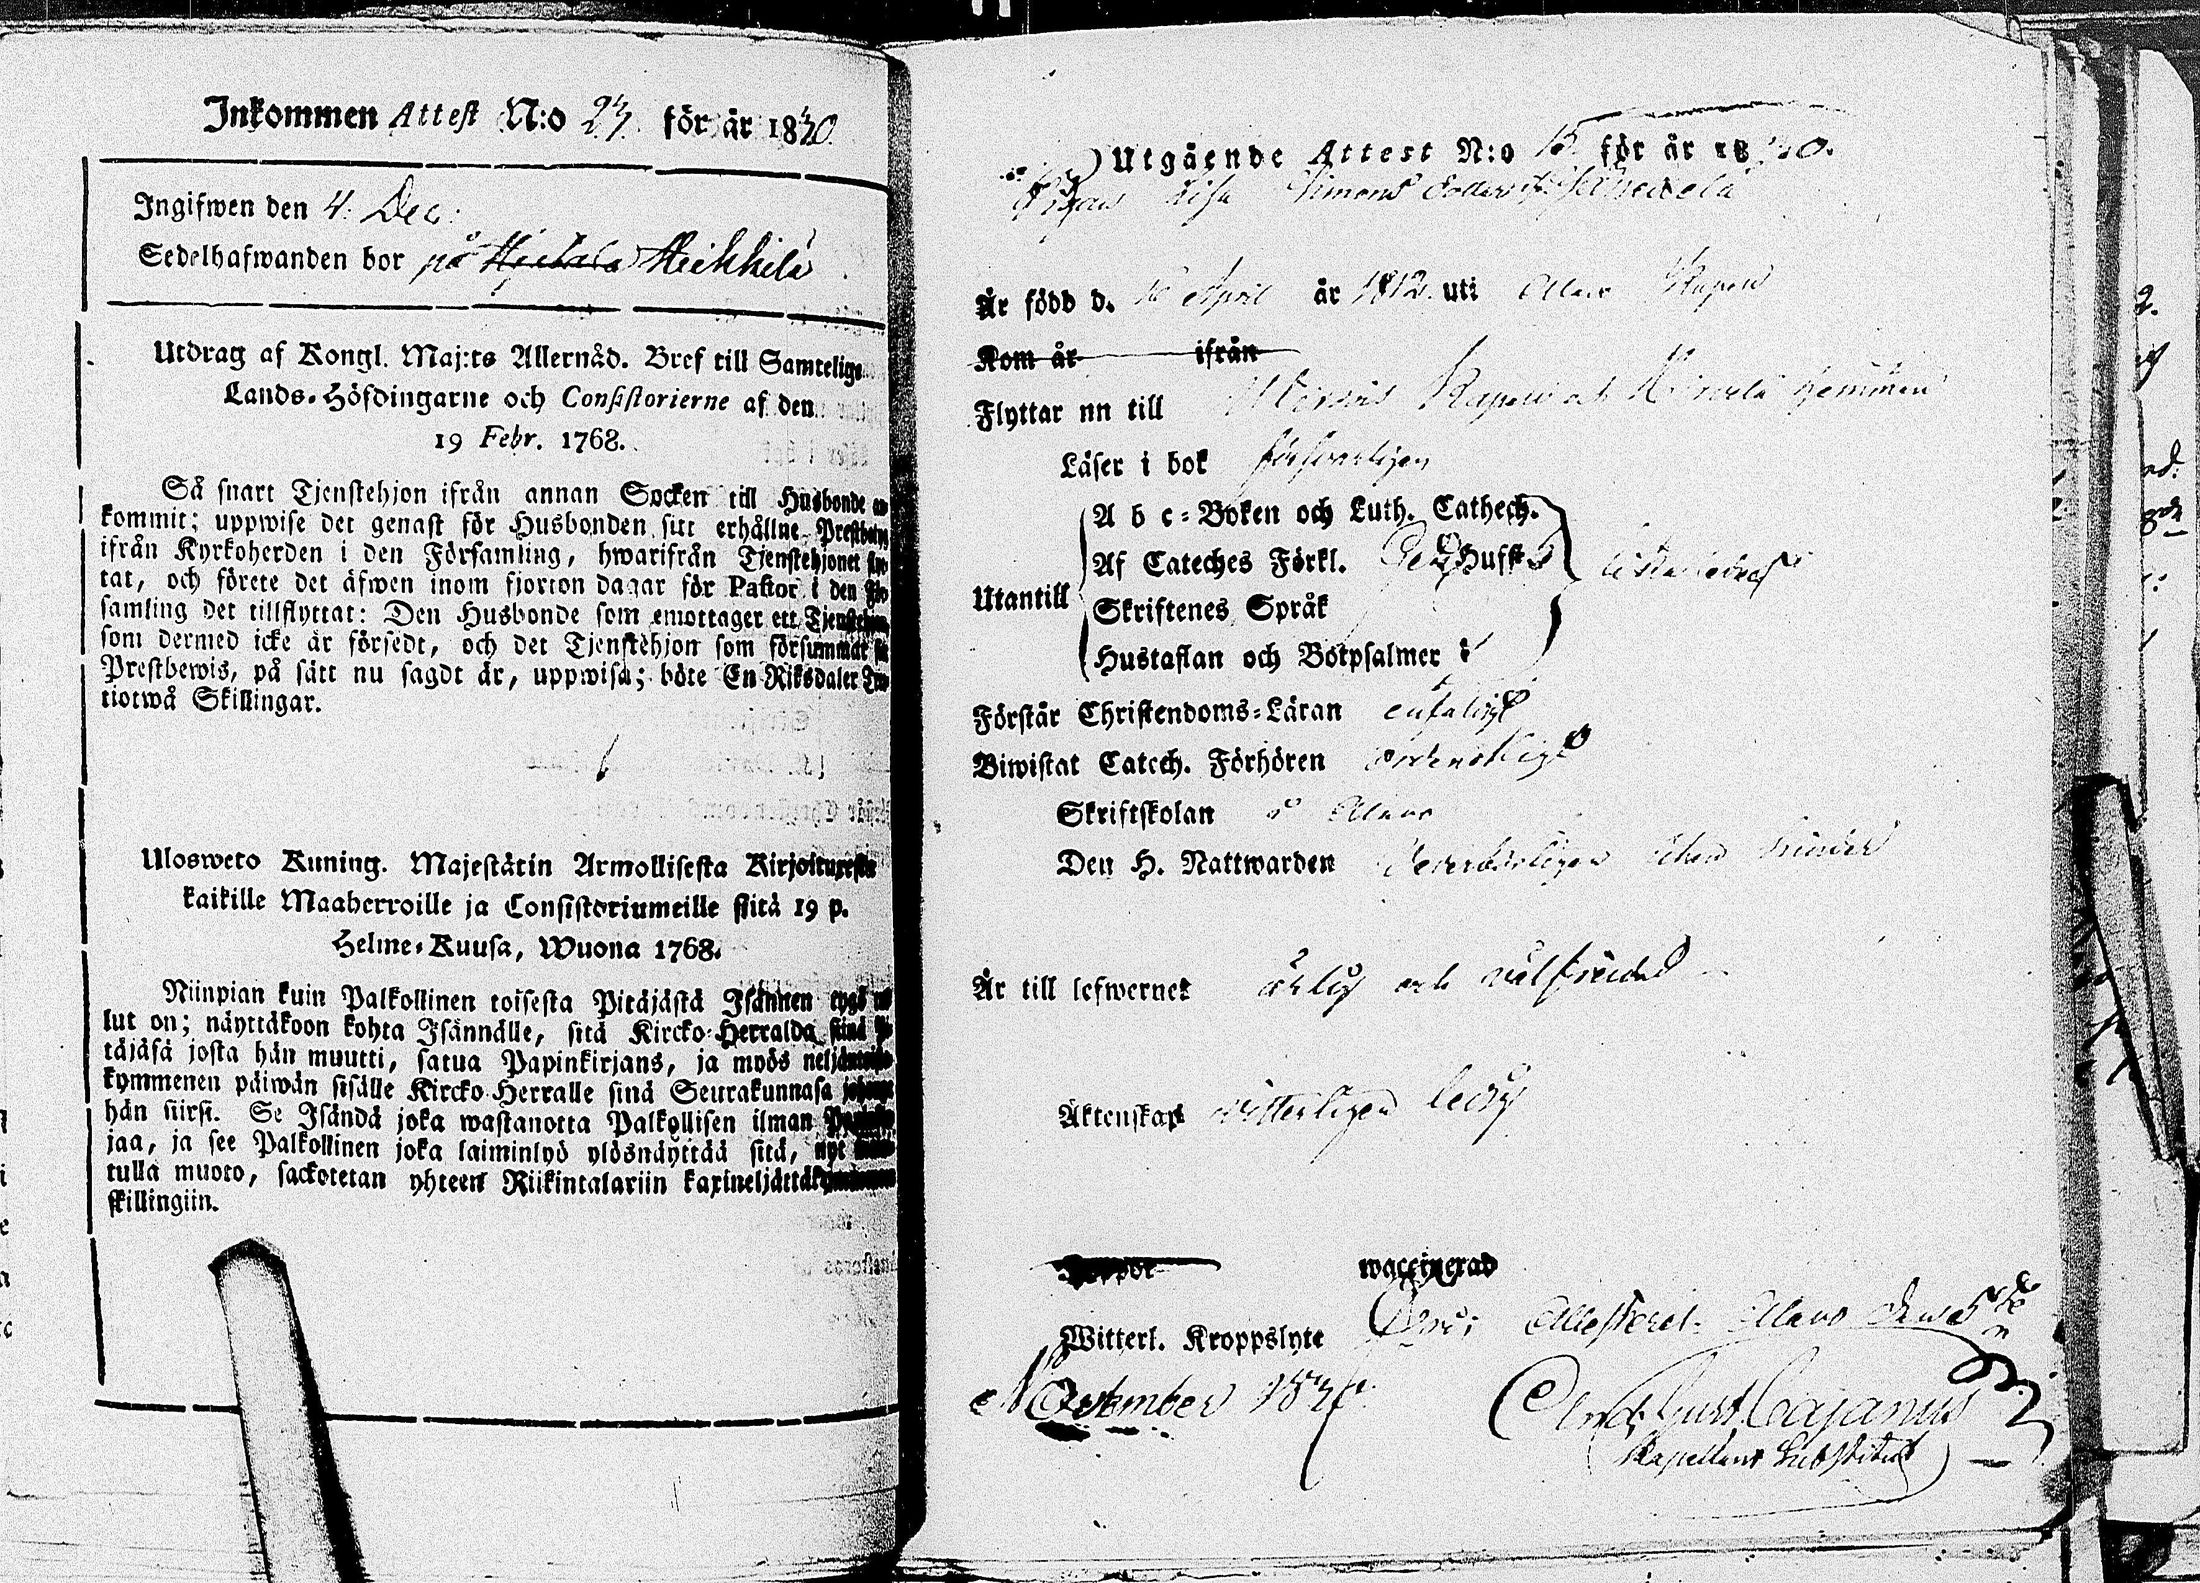 Inkommen Attest N:o 27. för år 1840.
Ingifwen den 4: Dec:
Sedelhafwanden bor på Heikkilä
Utdrag af Kongl. Maj:ts Allernåd. Bref till Samtelige
Lands-Höfdingarne och Consistorierne af den
19 Febr. 1768.
Så snart Tjenstehjon ifrån annan Socken till Husbonde an-
kommit; uppwise det genast för Husbonden sitt erhållne Prestbewis
ifrån Kyrkoherden i den Församling, hwarifrån Tjenstehjonet flyt-
tat, och förete det äfwen inom fjorton dagar för Pastor i den För-
samling det tillflyttat: Den Husbonde som emottager ett Tjenstehjon,
som dermed icke är försedt, och det Tjenstehjon som försummar sit
Prestbewis, på sätt nu sagdt är, uppwisa; böte En Riksdaler Tre-
tiotwå Skillingar.
Ulosweto Kuning. Majestätin Armollisesta Kirjoituxesta
kaikille Maaherroille ja Consistoriumeille siitä 19 p.
Helme-Kuusa, Wuona 1768.
Niinpian kuin Palkollinen toisesta Pitäjästä Isännen tygö tul-
lut on; näyttäkoon kohta Isännälle, sitä Kircko-Herralda siinä Pi-
täjäsä josta hän muutti, satua Papinkirjans, ja myös neljäntoista-
kymmenen päiwän sisälle Kircko-Herralle sinä Seurakunnasa johonga
hän siirsi. Se Isändä joka wastanotta Palkollisen ilman Papinkir-
jaa, ja see Palkollinen joka laiminlyö ylösnäyttää sitä, nyt
tulla muoto, sackotetan yhteen Riikintalariin kaxineljättäkymmenen
skillingiin.
Utgående Attest N:o 15. för år 1840.
Pigan Lisa Simons dotter
Är född d. April år 1812. uti Alavo Kapell
Kom år ifrån
Flyttar nu till Kapell och hemman
Läser i bok försvarligen
Utantill
A b c-Boken och Luth. Cathech.
Af Cateches Förkl.
Skriftenes Språk
Hustaflan och Botpsalmer
Förstår Christendoms-Läran enfaldigt
Biwistat Catech. Förhören ordentligt
Skriftskolan i Alavo
Den H. Nattwarden utan hinder
Är till lefwernet ärlig och välfrejdad
Äktenskap witterligen ledig
Koppor waccinerad
Witterl. Kroppslyte Attesteras. Alavo den
November 1840.
And: Gust. Cajanus
Kapellans Substitut